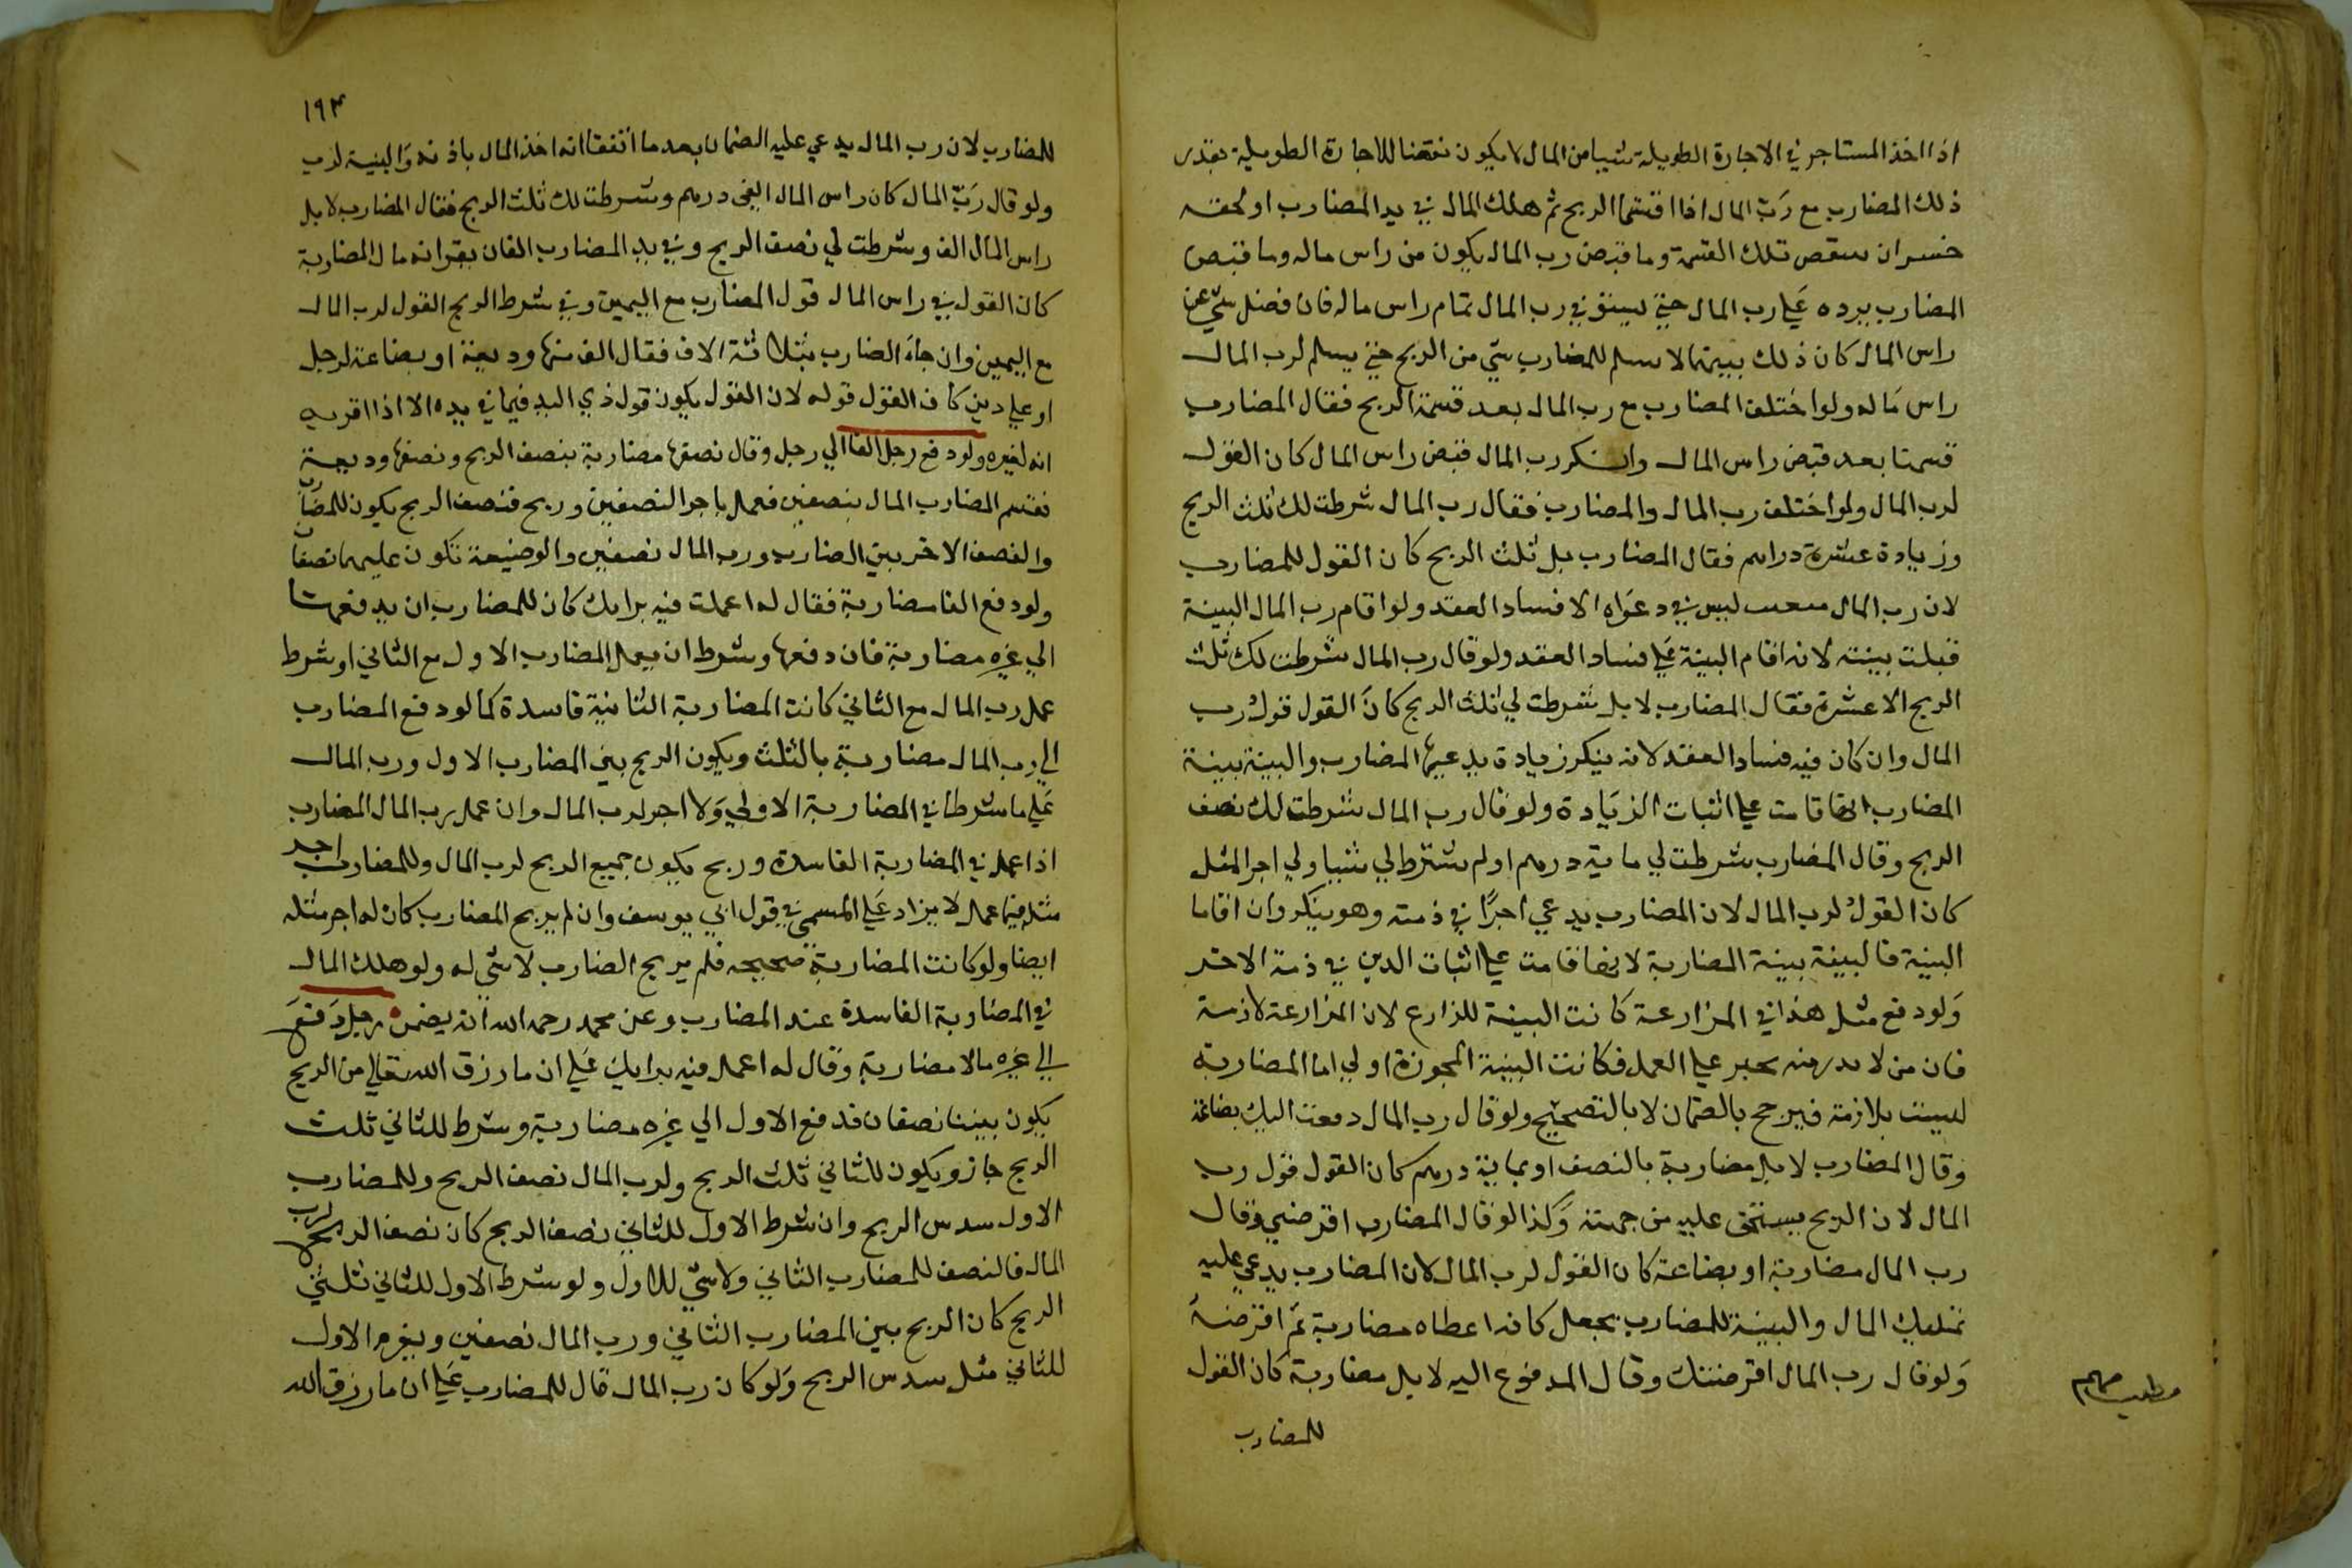 اذا اخذ المستاجر في الاجارة الطويلة شيا من المال لا يكون نقضا للاجارة الطويلة بقدر
ذلك المضارب مع رب المال اذا اقتسما الربح ثم هلك المال في يد المضارب او لحقه
خسران تلك القسمة وما قبض رب المال يكون من راس ماله وما قبض
المضارب يرده علي رب المال حتي يستوفي رب المال تمام راس ماله فان فضل شي عن
راس المال كان ذلك بينهما لا يسلم للمضارب شي من الربح حتي يسلم لرب المال
راس ماله ولو اختلف المضارب مع رب المال بعد قسمة الربح فقال المضارب
قسمنا بعد قبض راس المال وانكر رب المال قبض راس المال كان القول
لرب المال ولو اختلف رب المال والمضارب فقال رب المال شرطت لك ثلث الربح
وزيادة عشرة دراهم فقال المضارب بل ثلث الربح كان القول للمضارب
لان رب المال ليس في دعواه الا فساد العقد ولو اقام رب المال البينة
قبلت بينته لانه اقام البينة علي فساد العقد ولو قال رب المال شرطت لك ثلث
الربح الا عشرة فقال المضارب لا بل شرطت لي ثلث الربح كان القول قول رب
المال وان كان فيه فساد العقد لانه ينكر زيادة يدعيها المضارب والبينة بينة
المضارب انها قامت علي اثبات الزيادة ولو قال رب المال شرطت لك نصف
الربح وقال المضارب شرطت لي ماية درهم او لم يشترط لي شيا ولي اجر المثل
كان القول لرب المال لان المضارب يدعي اجرا في ذمته وهو ينكر وان اقاما
البينة فالبينة بينة المضاربة لانها قامت علي اثبات الدين في ذمة الاخر
ولو دفع مثل هذا في المزارعة كانت البينة للزارع لان المزارعة لازمة
فان من لا بدر منه يجبر علي العمل فكانت البينة المجوزة اولي اما المضاربة
ليست بلازمة فيرجح بالضمان لا بالتصحيح ولو قال رب المال دفعت اليك بضاعة
وقال المضارب لا بل مضاربة بالنصف او بماية درهم كان القول قول رب
المال لان الربح يستحق عليه من جهته وكذا لو قال المضارب اقرضتني وقال
رب المال مضاربة او بضاعة كان القول لرب المال لان المضارب يدعي عليه
تمليك المال والبينة للمضارب يجعل كانه اعطاه مضاربة ثم اقرضه
ولو قال رب المال اقرضتك وقال المدفوع اليه لا بل مضاربة كان القول
للمضارب
مطلب مهم
١٩٣
للمضارب لان رب المال يدعي عليه الضمان بعد ما اتفقا انه اخذ المال باذنه والبينة لرب
ولو قال رب المال كان راس المال الفي درهم وشرطت لك ثلث الربح فقال المضارب لا بل
راس المال الف وشرطت لي نصف الربح وفي يد المضارب الفان يقر انه مال المضاربة
كان القول في راس المال قول المضارب مع اليمين وفي شرط الربح القول لرب المال
مع اليمين وان جاء المضارب بثلاثة الاف فقال الف منها وديعة او بضاعة لرجل
او علي دين كان القول قوله لان القول يكون قول ذي اليد فيما في يده الا اذا اقر به
انه لغيره ولو دفع رجل الفا الي رجل وقال نصفها مضاربة بنصف الربح ونصفها وديعة
فقسم المضارب المال بنصفين فعمل باجر النصفين وربح فنصف الربح يكون للمضارب
والنصف الاخر بين المضارب ورب المال نصفين والوضيعة تكون عليهما نصفان
ولو دفع الفا مضاربة فقال له اعملت فيه برايك كان للمضارب ان يدفعها
الي غيره مضاربة فان دفعها وشرط ان يعمل المضارب الاول مع الثاني او شرط
عمل رب المال مع الثاني كانت المضاربة الثانية فاسدة كما لو دفع المضارب
الي رب المال مضاربة بالثلث ويكون الربح بين المضارب الاول ورب المال
علي ما شرطا في المضاربة الاولي ولا اجر لرب المال وان عمل رب المال المضارب
اذا عمل في المضاربة الفاسدة وربح يكون جميع الربح لرب المال وللمضارب اجر
مثله فيما عمل لا يزاد علي المسمي في قول ابي يوسف وان لم يربح المضارب كان له اجر مثله
ايضا ولو كانت المضاربة صحيحه فلم يربح المضارب لا شي له ولو هلك المال
في المضاربة الفاسدة عند المضارب وعن محمد رحمه الله انه يضمن رجل دفع
الي غيره مالا مضاربة وقال له اعمل فيه برايك علي ان ما رزق الله تعالي من الربح
يكون بيننا نصفان فدفع الاول الي غيره مضاربة وشرط للثاني ثلث
الربح جاز ويكون للثاني ثلث الربح ولرب المال نصف الربح وللمضارب
الاول سدس الربح وان شرط الاول للثاني نصف الربح كان نصف الربح لرب
المال فالنصف للمضارب الثاني ولا شي للاول ولو شرط الاول للثاني ثلثي
الربح كان الربح بين المضارب الثاني ورب المال نصفين ويغرم الاول
للثاني مثل سدس الربح ولو كان رب المال قال للمضارب علي ان ما رزق الله